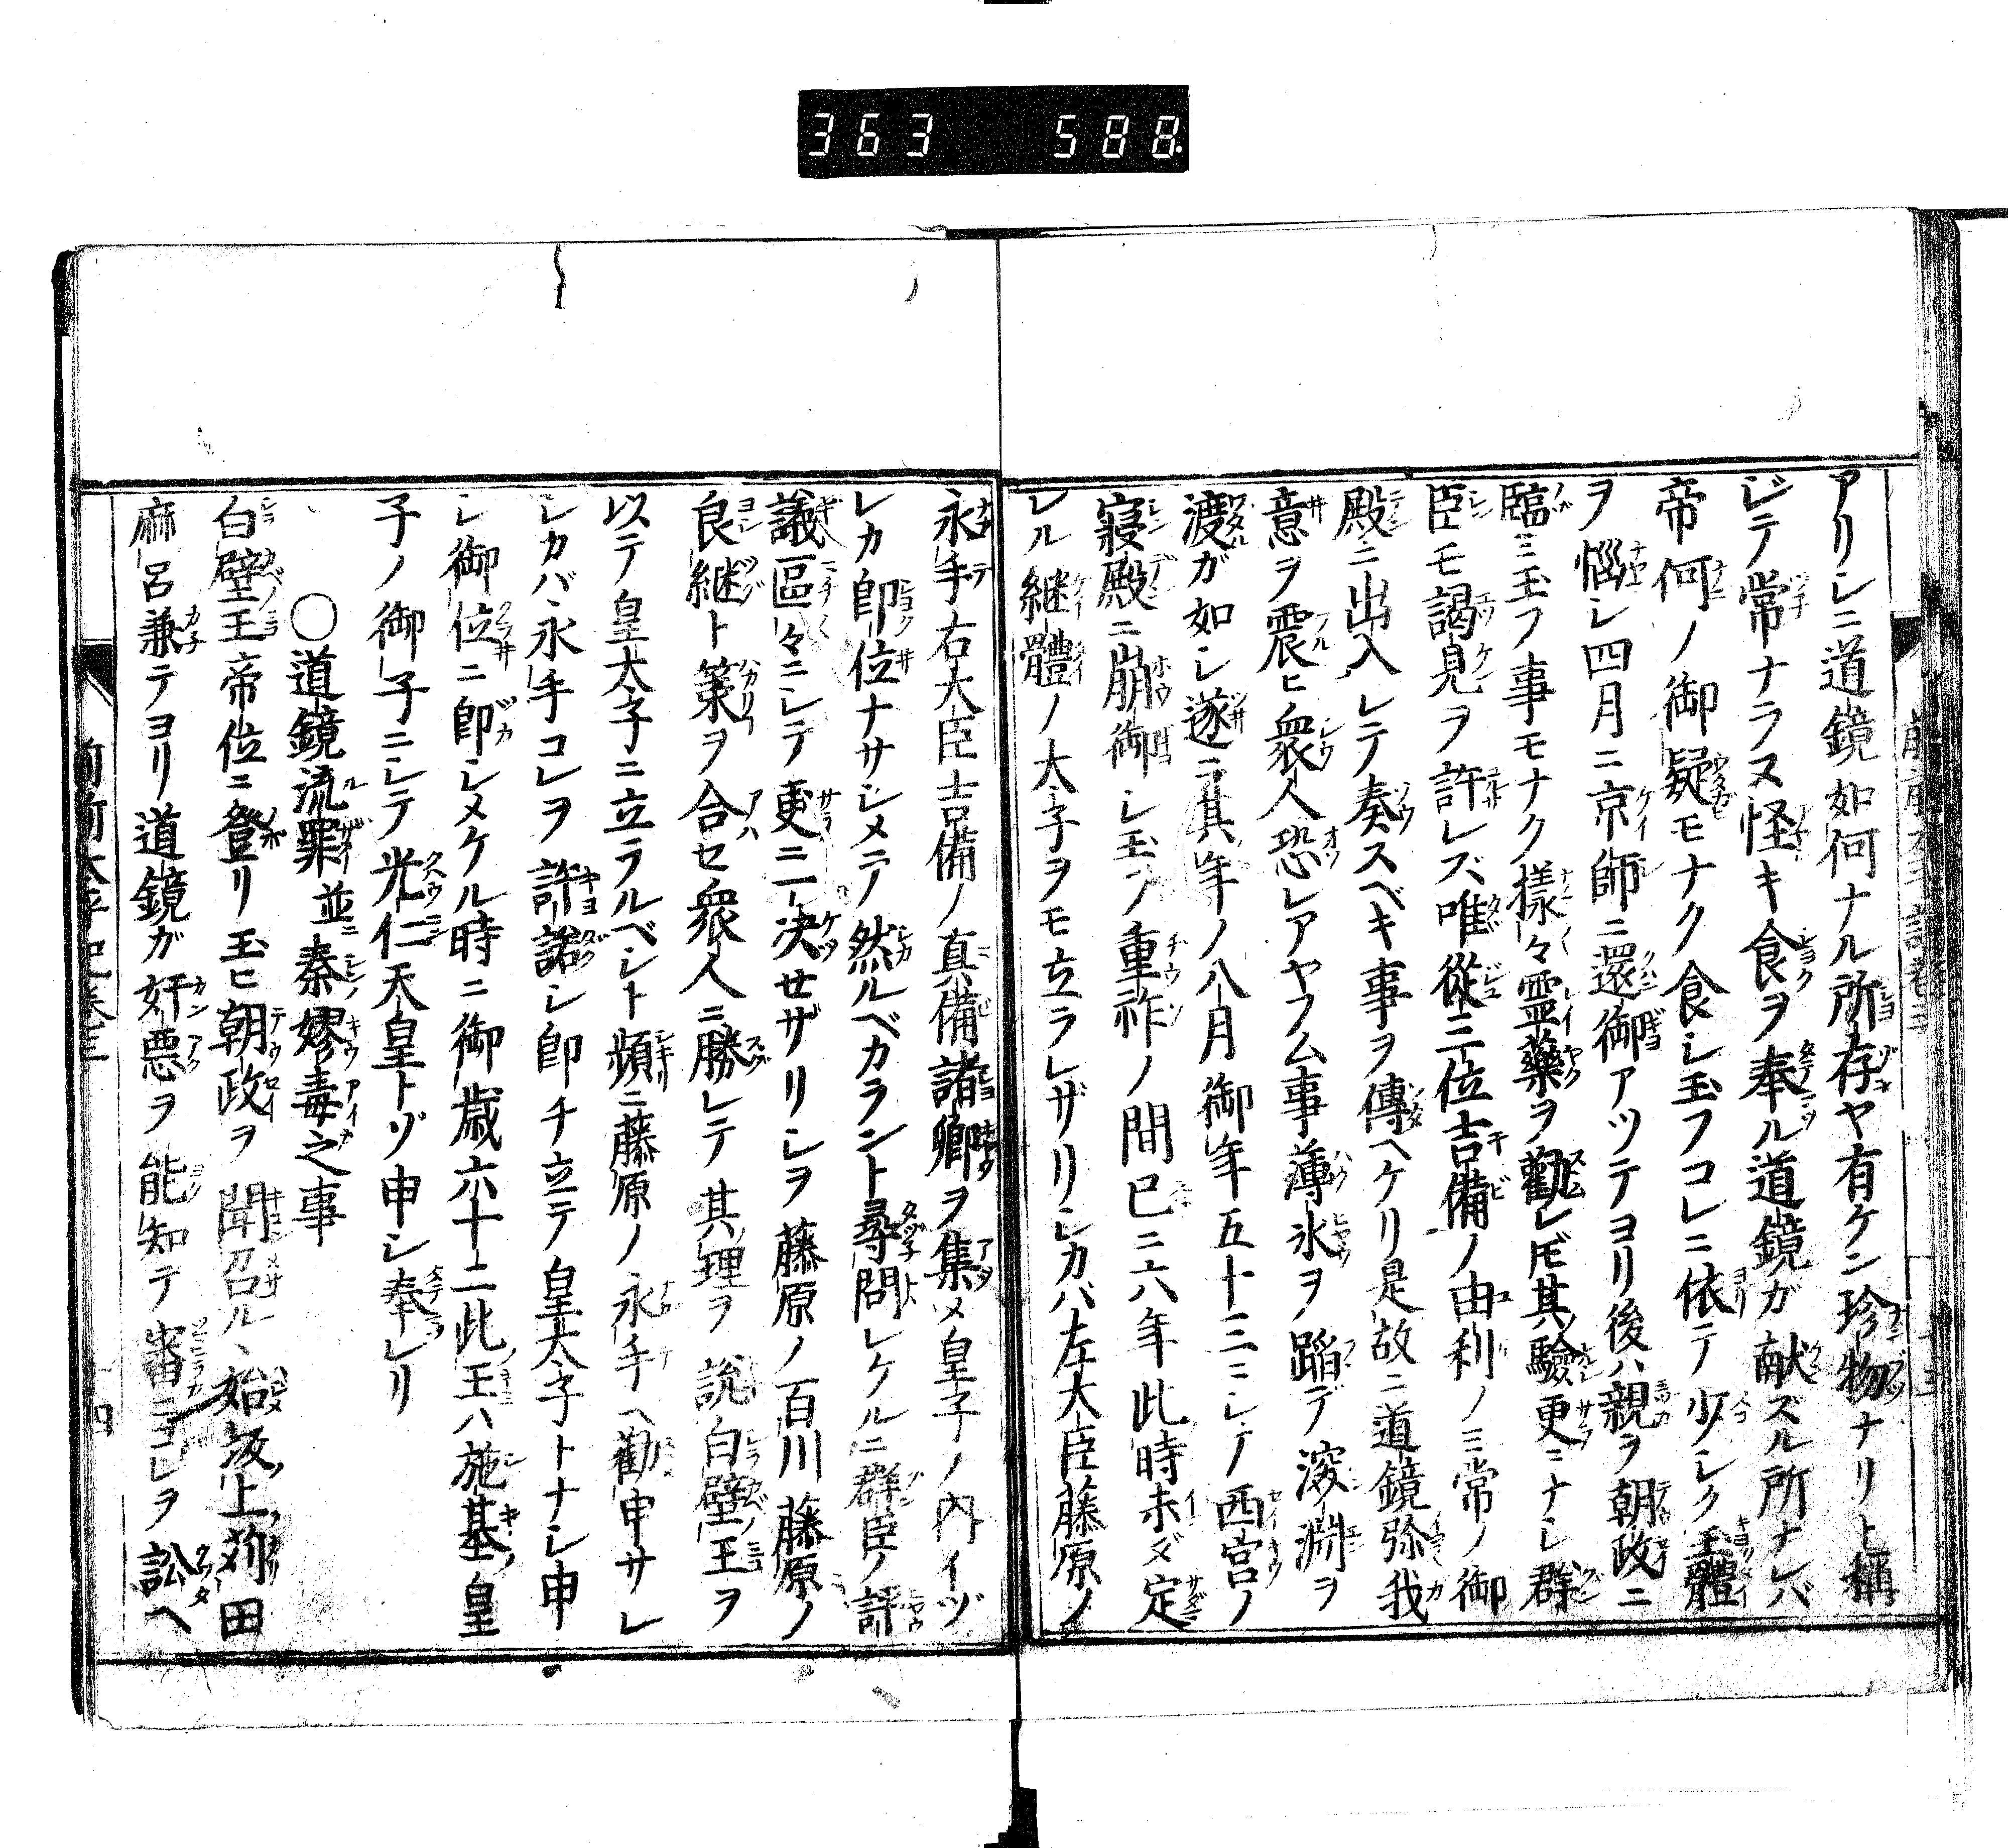 363 588
アリシニ道鏡如何ナル所存ヤ有ケン珍物ナリト稱
ジテ常ナラヌ怪キ食ヲ奉ル道鏡ガ献ズル所ナレバ
帝何ノ御疑モナク食シ玉フコレニ依テ少シク玉體
ヲ惱シ四月ニ京師ニ還御アツテヨリ後ハ親ラ朝政ニ
臨ミ玉フ事モナク樣々霊藥ヲ勸レ𪜈其驗更ニナシ群
臣モ謁見ヲ許レズ唯從三位吉備ノ由利ノミ常ノ御
殿ニ出入シテ奏スベキ事ヲ傳ヘケリ是故ニ道鏡弥我
意ヲ震ヒ衆人恐レアヤフム事薄氷ヲ蹈デ深淵ヲ
渡ガ如シ遂ニ其年ノ八月御年五十三ニシテ西宮ノ
寝殿ニ崩御シ玉フ重祚ノ間已ニ六年此時未ダ定
レル継體ノ太子ヲモ立ラレザリシカバ左大臣藤原ノ
永手右大臣吉備ノ真備諸卿ヲ集メ皇子ノ内イヅ
レカ即位ナサシメテ然ルベカラント尋問シケルニ群臣ノ評
議區々ニシテ更ニ一決せザリシヲ藤原ノ百川藤原ノ
良継ト策ヲ合セ衆人ニ勝レテ其理ヲ說白壁王ヲ
以テ皇太子ニ立ラルベシト頻ニ藤原ノ永手ヘ勸申サレ
シカバ永手コレヲ許諾シ即チ立テ皇太子トナシ申
シ御位ニ即シメケル時ニ御歳六十二此王ハ施基皇
子ノ御子ニシテ光仁天皇トゾ申シ奉レリ
〇道鏡流罪並秦嫪毒之事
白壁王帝位ニ登リ玉ヒ朝政ヲ聞召ル、始坂上苅田
麻呂兼テヨリ道鏡ガ奸悪ヲ能知テ審ニコレヲ訟ヘ